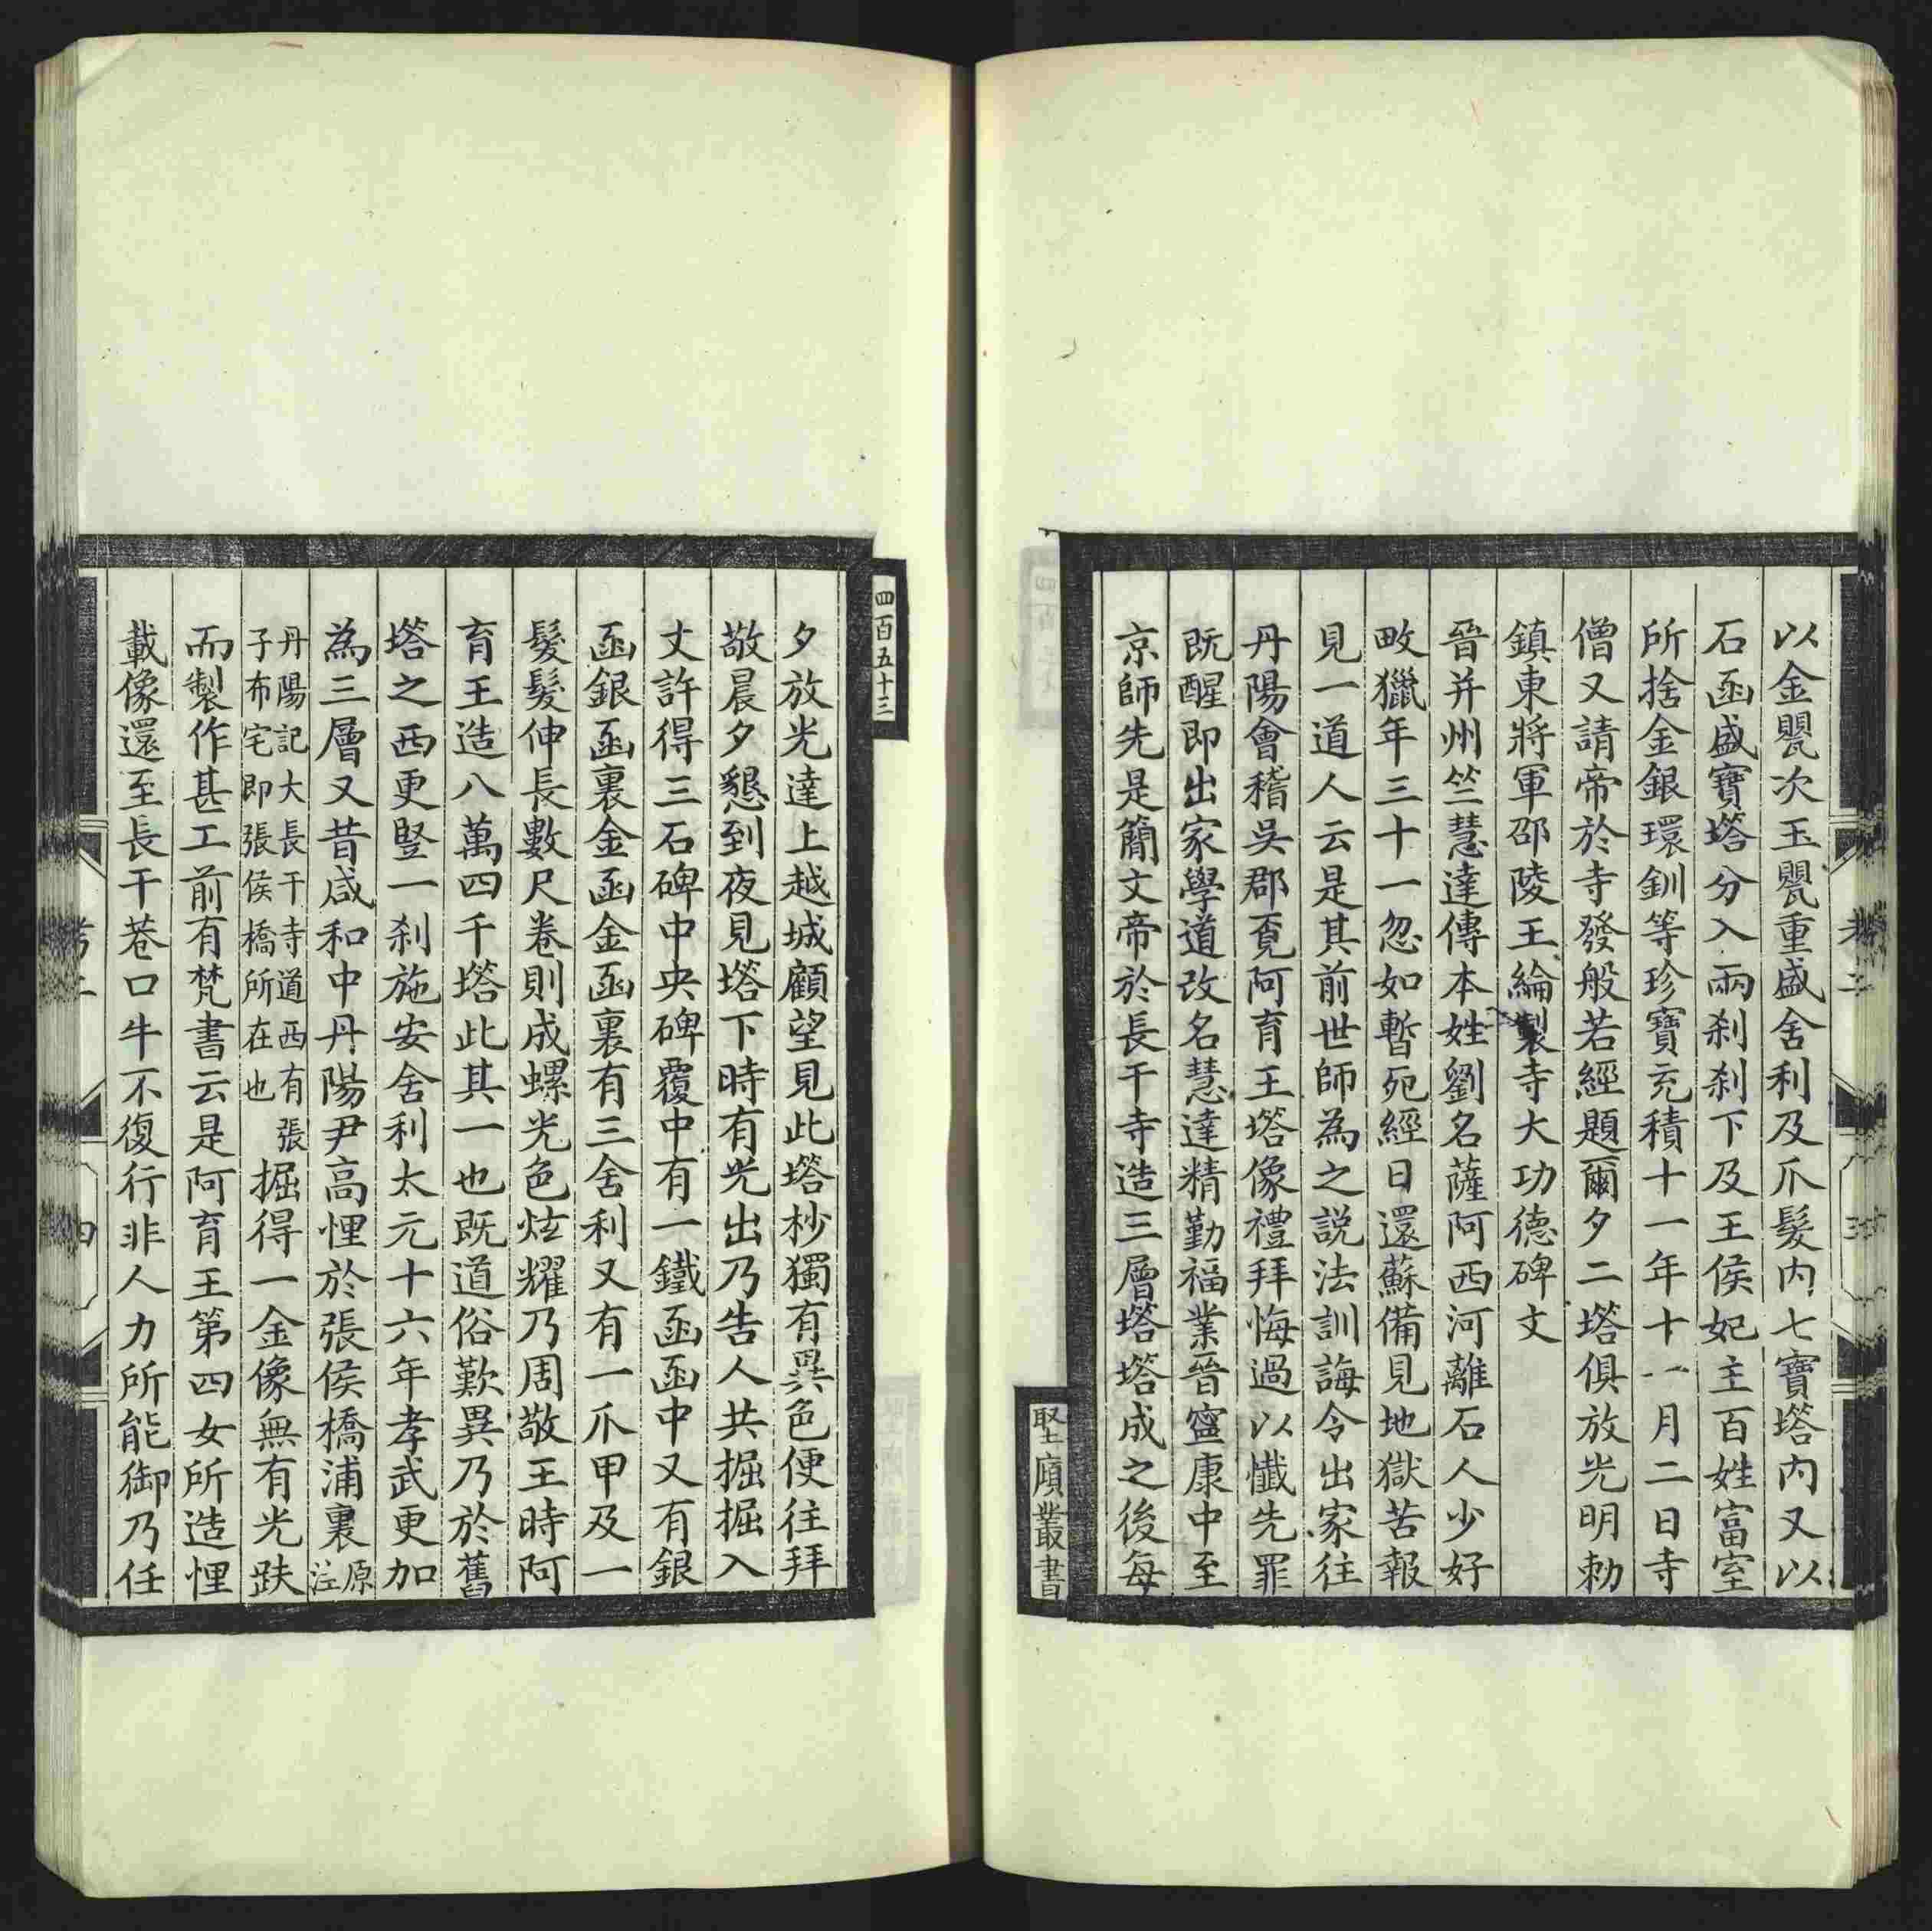 以金罌次玉罌重盛舍利及爪髮内七寶塔内又以
石函盛寶塔分入兩刹刹下及王侯妃主百姓富室
所捨金銀環釧等珍寶充積十一年十一月二日寺
僧又請帝於寺發般若經題爾夕二塔俱放光明勑
鎮東將軍邵陵王綸製寺大功德碑文
晉并州竺慧達傳本姓劉名薩阿西河離石人少好
畋獵年三十一忽如暫死經日還蘇備見地獄苦報
見一道人云是其前世師為之説法訓誨令出家往
丹陽會稽吳郡覓阿育王塔像禮拜悔過以懺先罪
既醒即出家學道改名慧達精勤福業晉寧康中至
京師先是簡文帝於長干寺造三層塔塔成之後每
堅䪺叢書
四百五十三
夕放光達上越城顧望見此塔杪獨有異色便往拜
敬晨夕懇到夜見塔下時有光出乃告人共掘掘入
丈許得三石碑中央碑覆中有一鐵函函中又有銀
函銀函裏金函金函裏有三舍利又有一爪甲及一
髮髮伸長數尺卷則成螺光色炫耀乃周敬王時阿
育王造八萬四千塔此其一也既道俗歎異乃於舊
塔之西更豎一刹施安舍利太元十六年孝武更加
為三層又昔咸和中丹陽尹高悝於張侯橋浦裏原注
丹陽記大長干寺道西有張
子布宅即張侯橋所在也
掘得一金像無有光趺
而製作甚工前有梵書云是阿育王第四女所造悝
載像還至長干巷口牛不復行非人力所能御乃任